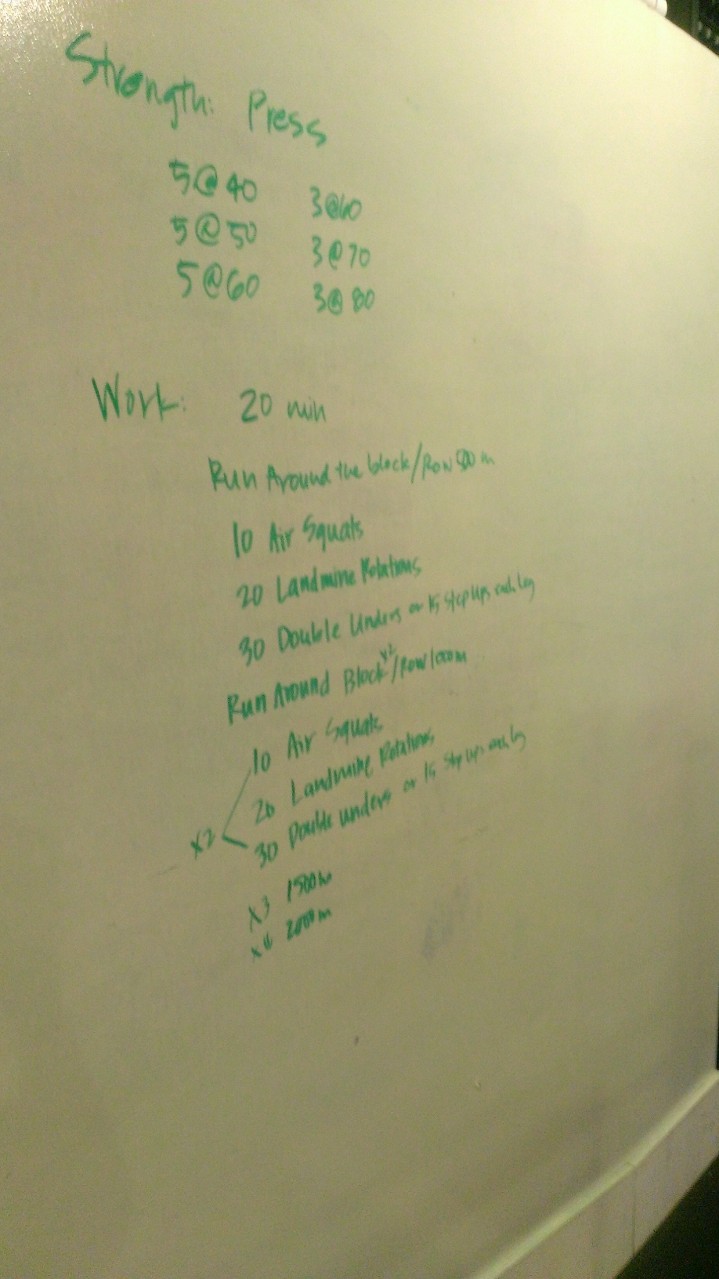 Strength: Press
5@40 3@60
5@50 3@70
5@60 3@80
Work: 20 min
Run Around the block/Row 500 m
10 Air Squats
20 Landmine Rotations
30 Double Unders or 15 Step Ups each leg
Run Around Block x2/Row 1000m
10 Air Squats
20 Landmine Rotations
x2
30 Double unders or 15 step ups each leg
x3 1500m
x4 2000m